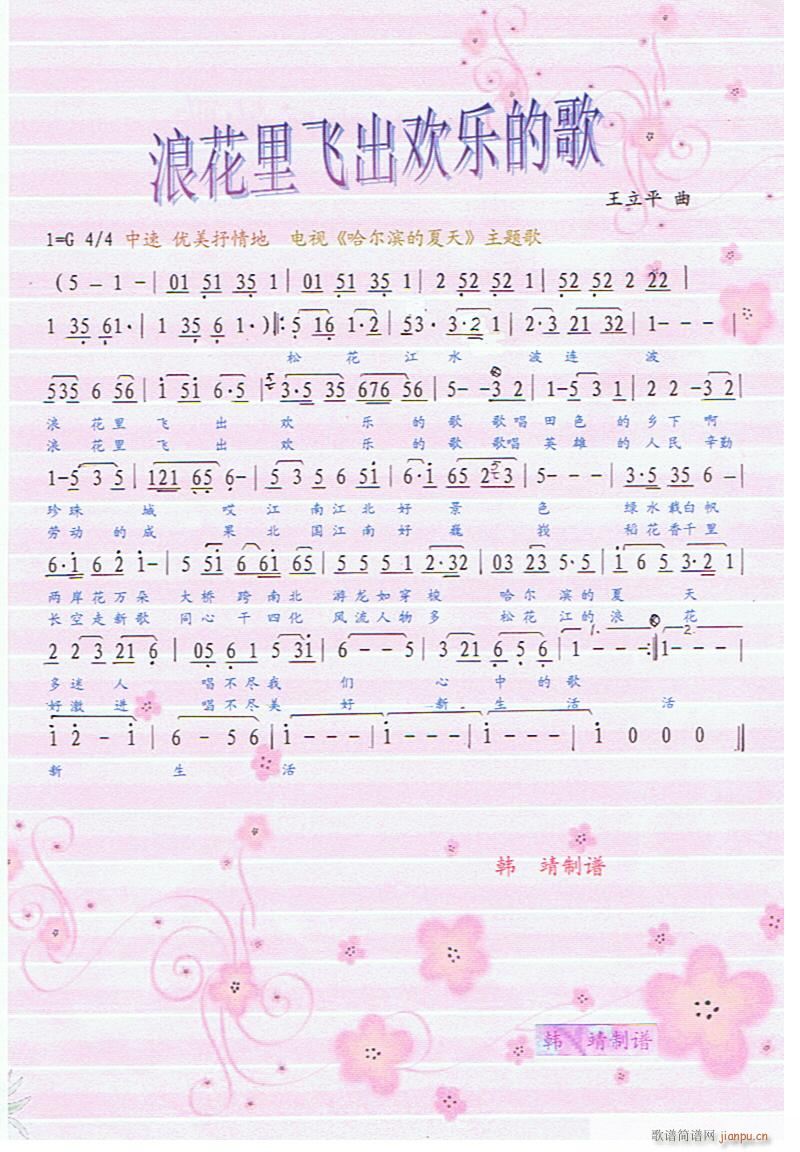 浪花里飞出欢乐的歌
王立平 曲
1=G 4/4 中速 优美抒情地 电视《哈尔滨的夏天》主题歌
(5 - 1 - | 01 51 35 1 | 01 51 35 1 | 2 52 52 1 | 52 52 2 22 |
1 35 61· | 1 35 6 1· )‖: 5 16 1·2 | 53· 3·2 1 | 2·3 21 32 | 1 - - - |
松 花 江 水 波 连 波
535 6 56 | i 5i 6·5 | 3·5 35 676 56 | 5 - -3 2 | 1-5 3 1 | 2 2 -3 2 |
浪 花 里 飞 出 欢 乐 的 歌 歌 唱 田 色 的 乡 下 啊
浪 花 里 飞 出 欢 乐 的 歌 歌 唱 英 雄 的 人 民 辛 勤
1-5 3 5 | 121 65 6- | 5 3 5 6 5i | 6·i 65 253 | 5 - - - | 3·5 35 6 - |
珍 珠 城 哎 江 南 江 北 好 景 色 绿 水 载 白 帆
劳 动 的 成 果 北 国 江 南 好 巍 峩 稻 花 香 千 里
6·i 62 i- | 5 5i 6 6i 65 | 5 5 5 1 2·32 | 03 23 5·5 | i 6 5 3·2 1 |
两 岸 花 万 朵 大 桥 跨 南 北 游 龙 如 穿 梭 哈 尔 滨 的 夏 天
长 空 走 新 歌 同 心 干 四 化 风 流 人 物 多 松 花 江 的 浪 花
2 2 3 21 6 | 05 6 1 5 3i | 6 - - 5 | 3 21 6 5 6 | 1 - - - :‖ 1 - - - |
1. 2.
多 迷 人 唱 不 尽 我 们 心 中 的 歌
好 激 进 唱 不 尽 美 好 新 生 活 活
i 2 - i | 6 - 5 6 | i - - - | i - - - | i - - - | i 0 0 0 ‖
新 生 活
韩 靖制谱
韩 靖制谱
歌谱简谱网 jianpu.cn